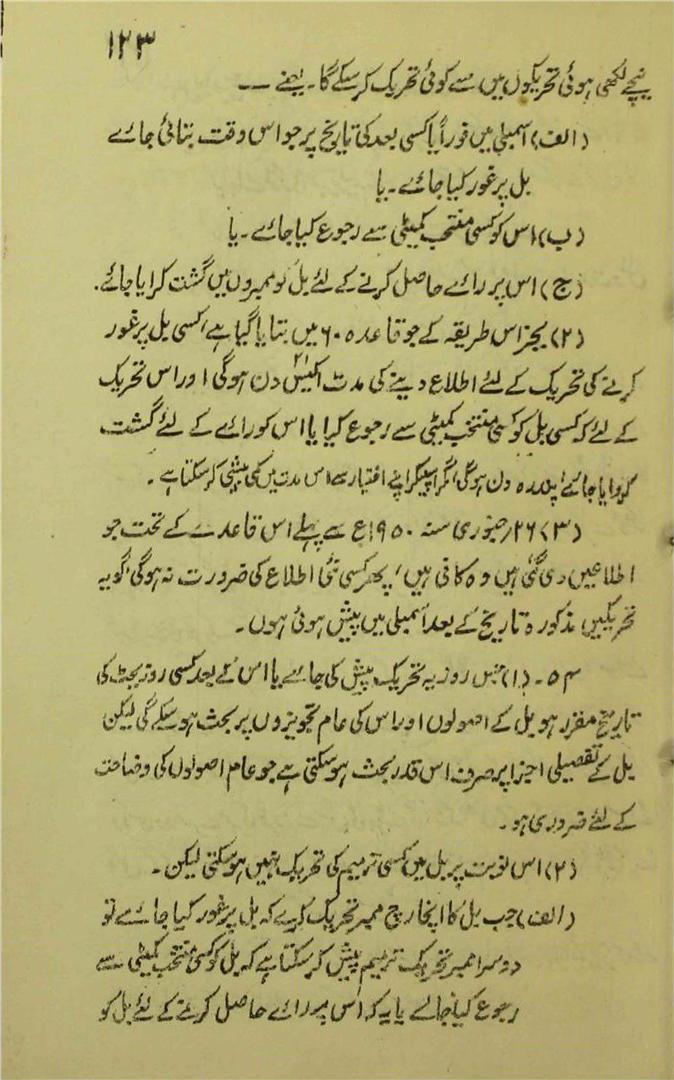 ۱۲۳
نیچے لکھی ہوئی تحریکوں میں سے کوئی تحریک کرسکے گا۔ یعنے ——
(الف) اسمبلی میں فوراً یا کسی بعد کی تاریخ پر جو اس وقت بتائی جائے
بل پر غور کیا جائے۔ یا
(ب) اس کو کسی منتخب کمیٹی سے رجوع کیا جائے۔ یا
(ج) اس پر رائے حاصل کرنے کے لئے بل کو ممبروں میں گشت کرایا جائے۔
(۲) بجز اس طریقہ کے جو قاعدہ ۶۰ میں بتایا گیا ہے، کسی بل پر غور
کرنے کی تحریک کے لئے اطلاع دینے کی مدت اکیس ۲۱ دن ہوگی اور اس تحریک
کے لئے کہ کسی بل کو کسی منتخب کمیٹی سے رجوع کیا یا اس کو رائے کے لئے گشت
کروایا جائے، پندرہ دن ہوگی مگر اسپیکر اپنے اختیار سے اس مدت میں کمی بیشی کرسکتا ہے۔
(۳) ۲۶؍جنوری سنہ ۱۹۵۰ع سے پہلے اس قاعدے کے تحت جو
اطلاعیں دی گئی ہیں وہ کافی ہیں، پھر کسی نئی اطلاع کی ضرورت نہ ہوگی، گو یہ
تحریکیں مذکورہ تاریخ کے بعد اسمبلی میں پیش ہوئی ہوں۔
۵۴۔ (۱) جس روز یہ تحریک پیش کی جائے یا اس کے بعد کسی روز بحث کی
تاریخ مقرر ہو بل کے اصولوں اور اس کی عام تجویزوں پر بحث ہوسکے گی لیکن
بل کے تفصیلی اجزا پر صرف اس قدر بحث ہوسکتی ہے جو عام اصولوں کی وضاحت
کے لئے ضروری ہو۔
(۲) اس نوبت پر بل میں کسی ترمیم کی تحریک نہیں ہوسکتی لیکن۔
(الف) جب بل کا انچارج ممبر تحریک کرے کہ بل پر غور کیا جائے تو
دوسرا ممبر تحریک ترمیم پیش کرسکتا ہے کہ بل کو کسی منتخب کمیٹی سے
رجوع کیا جائے یا یہ کہ اس پر رائے حاصل کرنے کے لئے بل کو